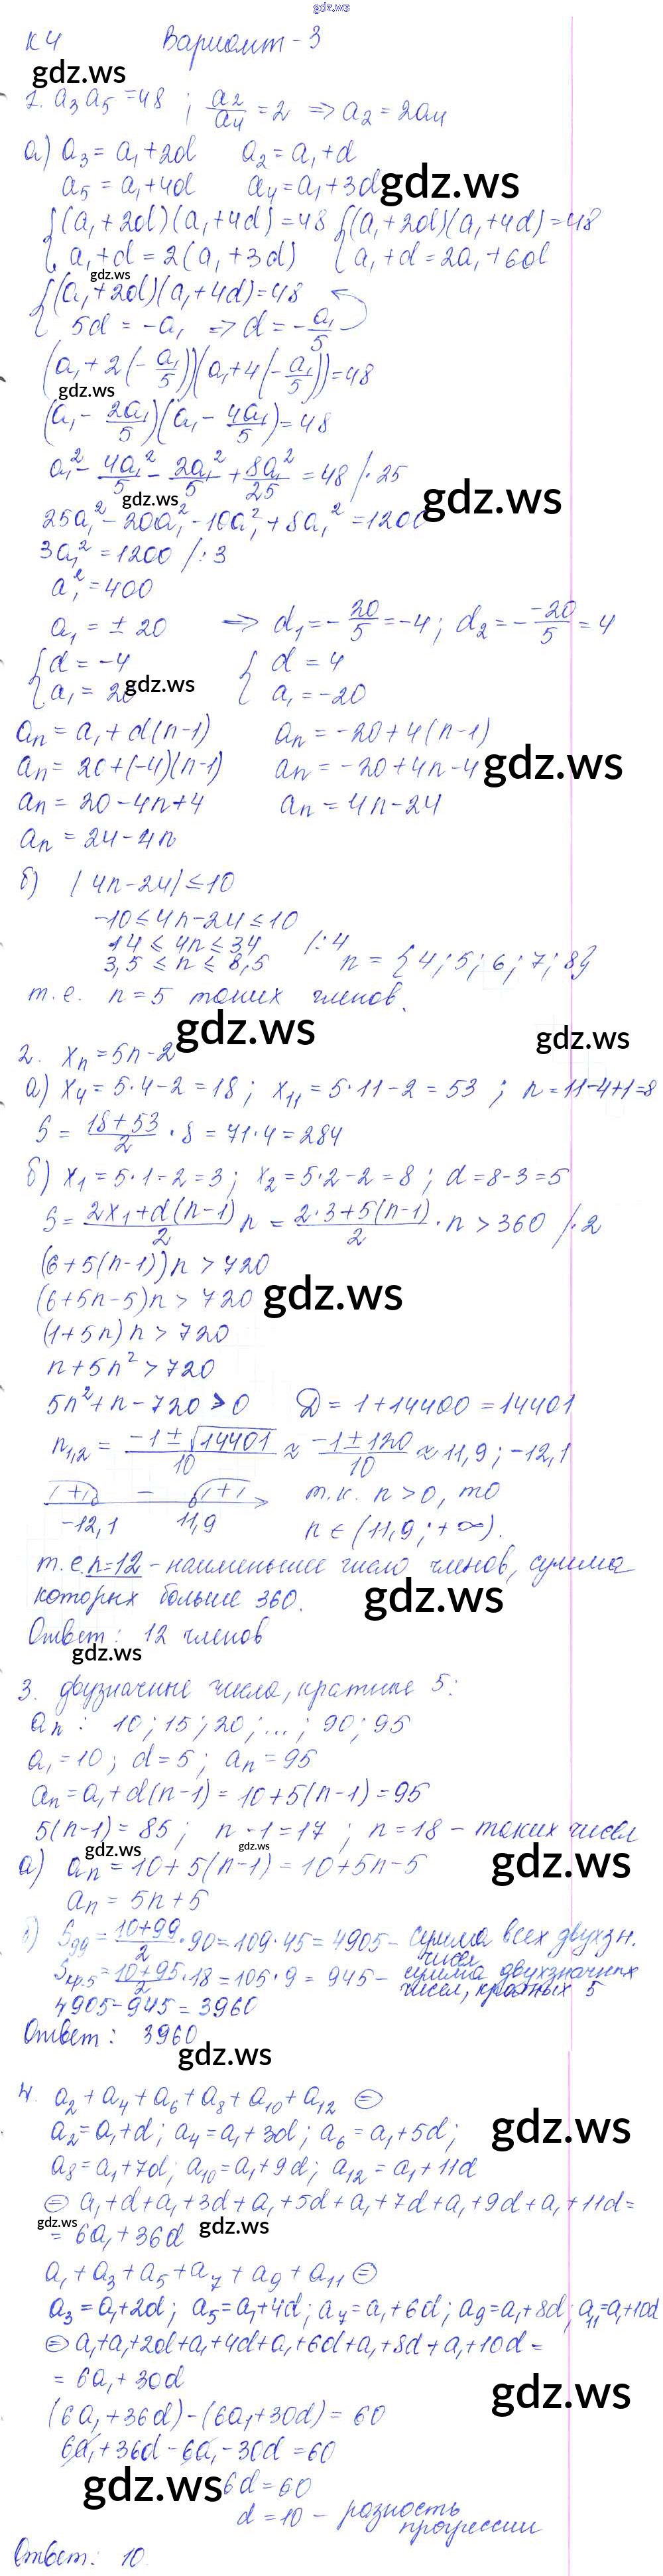 gdz.ws
К4 Вариант-3
gdz.ws
1. a₃a₅=48 ; a₂/a₄ = 2 ⇒ a₂ = 2a₄
а) a₃ = a₁+2d a₂ = a₁+d
a₅ = a₁+4d a₄ = a₁+3d gdz.ws
{(a₁+2d)(a₁+4d)=48 {(a₁+2d)(a₁+4d)=48
{a₁+d = 2(a₁+3d) {a₁+d = 2a₁+6d
gdz.ws
{(a₁+2d)(a₁+4d)=48
{5d = -a₁ ⇒ d = -a₁/5
(a₁+2(-a₁/5))(a₁+4(-a₁/5))=48
gdz.ws
(a₁ - 2a₁/5)(a₁ - 4a₁/5)=48
a₁² - 4a₁²/5 - 2a₁²/5 + 8a₁²/25 = 48 /·25
gdz.ws gdz.ws
25a₁² - 20a₁² - 10a₁² + 8a₁² = 1200
3a₁² = 1200 /:3
a₁² = 400
a₁ = ± 20 ⇒ d₁ = -20/5 = -4; d₂ = - -20/5 = 4
{d = -4 {d = 4
{a₁ = 20 gdz.ws {a₁ = -20
aₙ = a₁+d(n-1) aₙ = -20+4(n-1)
aₙ = 20+(-4)(n-1) aₙ = -20+4n-4 gdz.ws
aₙ = 20-4n+4 aₙ = 4n-24
aₙ = 24-4n
б) |4n-24|≤10
-10≤4n-24≤10
14 ≤ 4n ≤ 34 /:4
3,5 ≤ n ≤ 8,5 n = {4; 5; 6; 7; 8}
т.е. n=5 таких членов.
gdz.ws gdz.ws
2. xₙ=5n-2
а) x₄ = 5·4-2 = 18; x₁₁ = 5·11-2 = 53 ; n=11-4+1=8
S = (18+53)/2 · 8 = 71·4 = 284
б) x₁ = 5·1-2 = 3; x₂ = 5·2-2 = 8; d = 8-3 = 5
S = (2x₁+d(n-1))/2 n = (2·3+5(n-1))/2 · n > 360 /·2
(6+5(n-1))n > 720
(6+5n-5)n > 720 gdz.ws
(1+5n)n > 720
n+5n² > 720
5n²+n-720 > 0 D = 1+14400 = 14401
n₁,₂ = (-1±√14401)/10 ≈ (-1±120)/10 ≈ 11,9; -12,1
+ - + т.к. n>0, то
-12,1 11,9 n∈(11,9;+∞).
т.е. n=12 - наименьшее число членов, сумма
которых больше 360. gdz.ws
Ответ: 12 членов
gdz.ws
3. двузначные числа, кратные 5:
aₙ: 10; 15; 20; ...; 90; 95
a₁=10; d=5; aₙ=95
aₙ = a₁+d(n-1) = 10+5(n-1) = 95
5(n-1) = 85; n-1 = 17 ; n = 18 - таких чисел
gdz.ws gdz.ws gdz.ws
а) aₙ = 10+5(n-1) = 10+5n-5
aₙ = 5n+5
б) S₉₉ = (10+99)/2·90 = 109·45 = 4905 - сумма всех двузн.
числ
Sкр.5 = (10+95)/2·18 = 105·9 = 945 - сумма двузначных
чисел, кратных 5
4905-945 = 3960
Ответ: 3960
gdz.ws
4. a₂+a₄+a₆+a₈+a₁₀+a₁₂ ⊜
a₂=a₁+d; a₄=a₁+3d; a₆=a₁+5d; gdz.ws
a₈=a₁+7d; a₁₀=a₁+9d; a₁₂=a₁+11d
⊜ a₁+d+a₁+3d+a₁+5d+a₁+7d+a₁+9d+a₁+11d=
gdz.ws gdz.ws
= 6a₁+36d
a₁+a₃+a₅+a₇+a₉+a₁₁ ⊜
a₃=a₁+2d; a₅=a₁+4d; a₇=a₁+6d; a₉=a₁+8d; a₁₁=a₁+10d
⊜ a₁+a₁+2d+a₁+4d+a₁+6d+a₁+8d+a₁+10d =
= 6a₁+30d
gdz.ws
(6a₁+36d)-(6a₁+30d) = 60
6a₁+36d-6a₁-30d = 60
gdz.ws 6d = 60
d = 10 - разность
прогрессии
Ответ: 10.